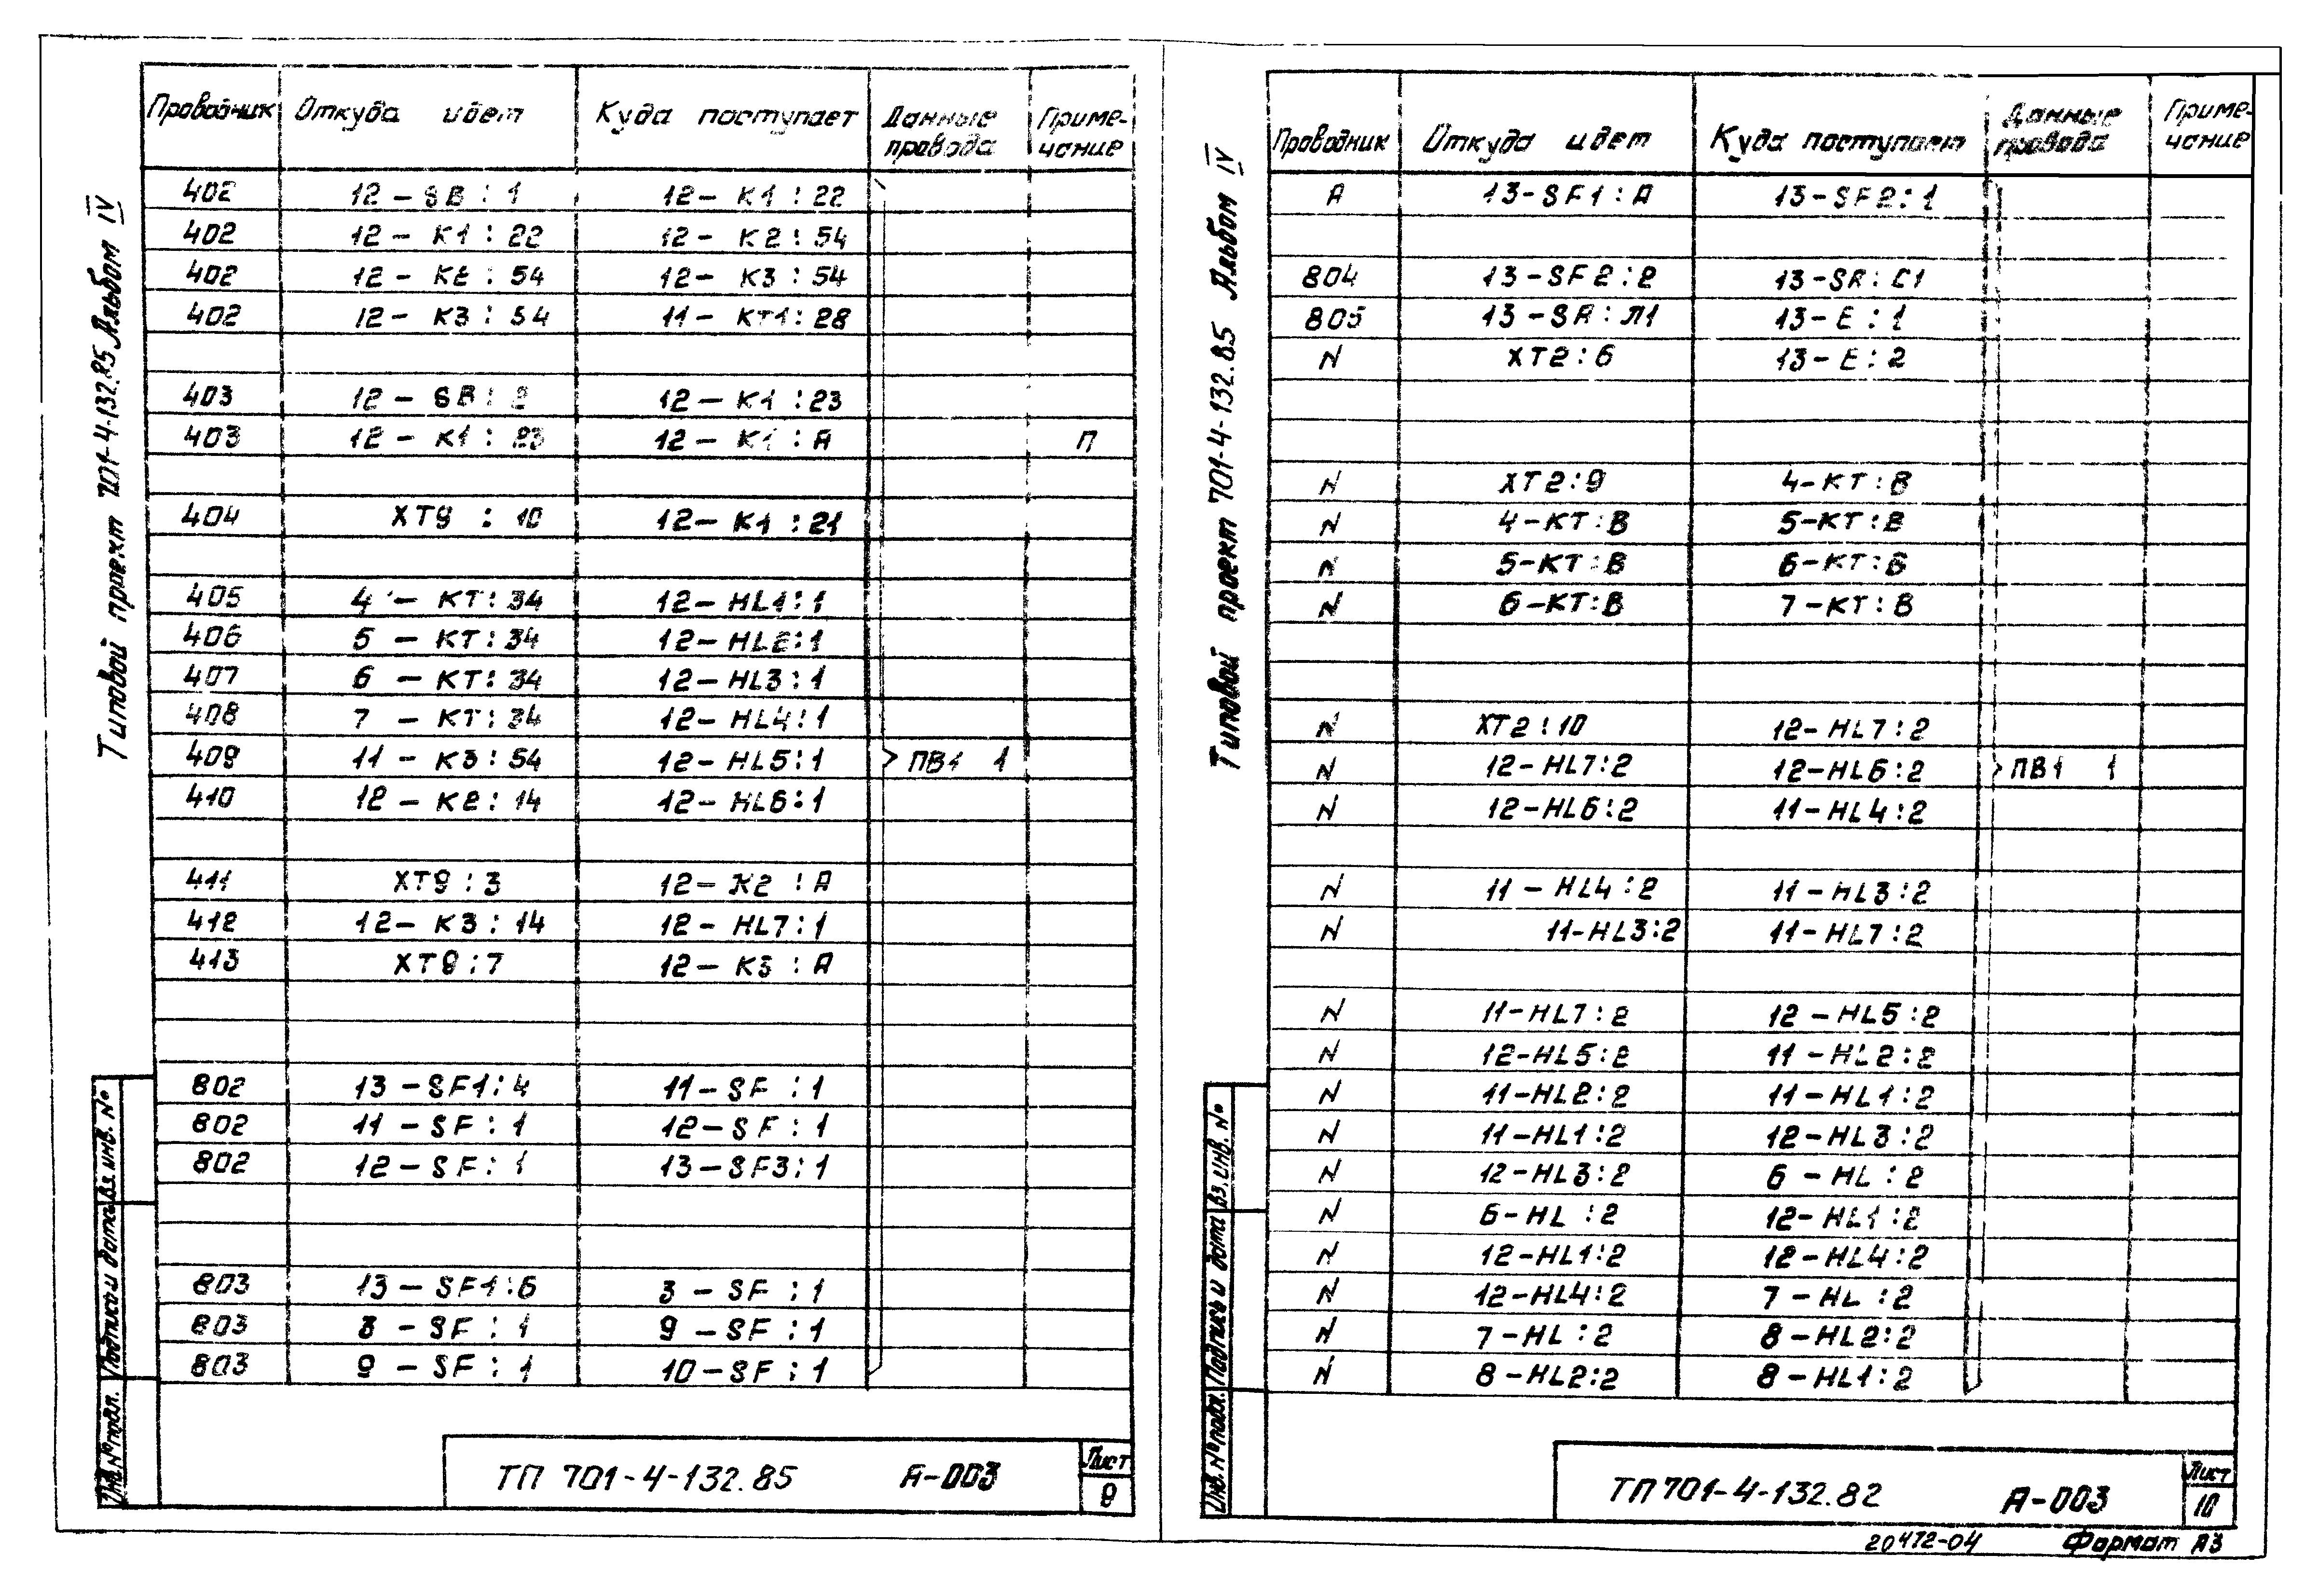 Типовой проект 701-4-132.85 Альбом IV
Проводник Откуда идет Куда поступает Данные провода Приме-чание
402 12 - SB : 1 12 - K1 : 22
402 12 - K1 : 22 12 - K2 : 54
402 12 - K2 : 54 12 - K3 : 54
402 12 - K3 : 54 11 - KT1 : 28
403 12 - SB : 2 12 - K1 : 23
403 12 - K1 : 23 12 - K1 : A П
404 XT9 : 10 12 - K1 : 21
405 4 - KT : 34 12 - HL1 : 1
406 5 - KT : 34 12 - HL2 : 1
407 6 - KT : 34 12 - HL3 : 1
408 7 - KT : 34 12 - HL4 : 1
409 11 - K3 : 54 12 - HL5 : 1 ПВ1 1
410 12 - K2 : 14 12 - HL6 : 1
411 XT9 : 3 12 - K2 : A
412 12 - K3 : 14 12 - HL7 : 1
413 XT9 : 7 12 - K3 : A
802 13 - SF1 : 4 11 - SF : 1
802 11 - SF : 1 12 - SF : 1
802 12 - SF : 1 13 - SF3 : 1
803 13 - SF1 : 6 3 - SF : 1
803 8 - SF : 1 9 - SF : 1
803 9 - SF : 1 10 - SF : 1
Инв. № подл. Подпись и дата Вз. инв. №
ТП 701-4-132.85 А-003 Лист 9
Типовой проект 701-4-132.85 Альбом IV
Проводник Откуда идет Куда поступает Данные провода Приме-чание
A 13 - SF1 : A 13 - SF2 : 1
804 13 - SF2 : 2 13 - SA : C1
805 13 - SA : Л1 13 - E : 1
N XT2 : 6 13 - E : 2
N XT2 : 9 4 - KT : B
N 4 - KT : B 5 - KT : B
N 5 - KT : B 6 - KT : B
N 6 - KT : B 7 - KT : B
N XT2 : 10 12 - HL7 : 2
N 12 - HL7 : 2 12 - HL6 : 2 ПВ1 1
N 12 - HL6 : 2 11 - HL4 : 2
N 11 - HL4 : 2 11 - HL3 : 2
N 11 - HL3 : 2 11 - HL7 : 2
N 11 - HL7 : 2 12 - HL5 : 2
N 12 - HL5 : 2 11 - HL2 : 2
N 11 - HL2 : 2 11 - HL1 : 2
N 11 - HL1 : 2 12 - HL3 : 2
N 12 - HL3 : 2 6 - HL : 2
N 6 - HL : 2 12 - HL1 : 2
N 12 - HL1 : 2 12 - HL4 : 2
N 12 - HL4 : 2 7 - HL : 2
N 7 - HL : 2 8 - HL2 : 2
N 8 - HL2 : 2 8 - HL1 : 2
Инв. № подл. Подпись и дата Вз. инв. №
ТП 701-4-132.82 А-003 Лист 10
20472-04 Формат А3